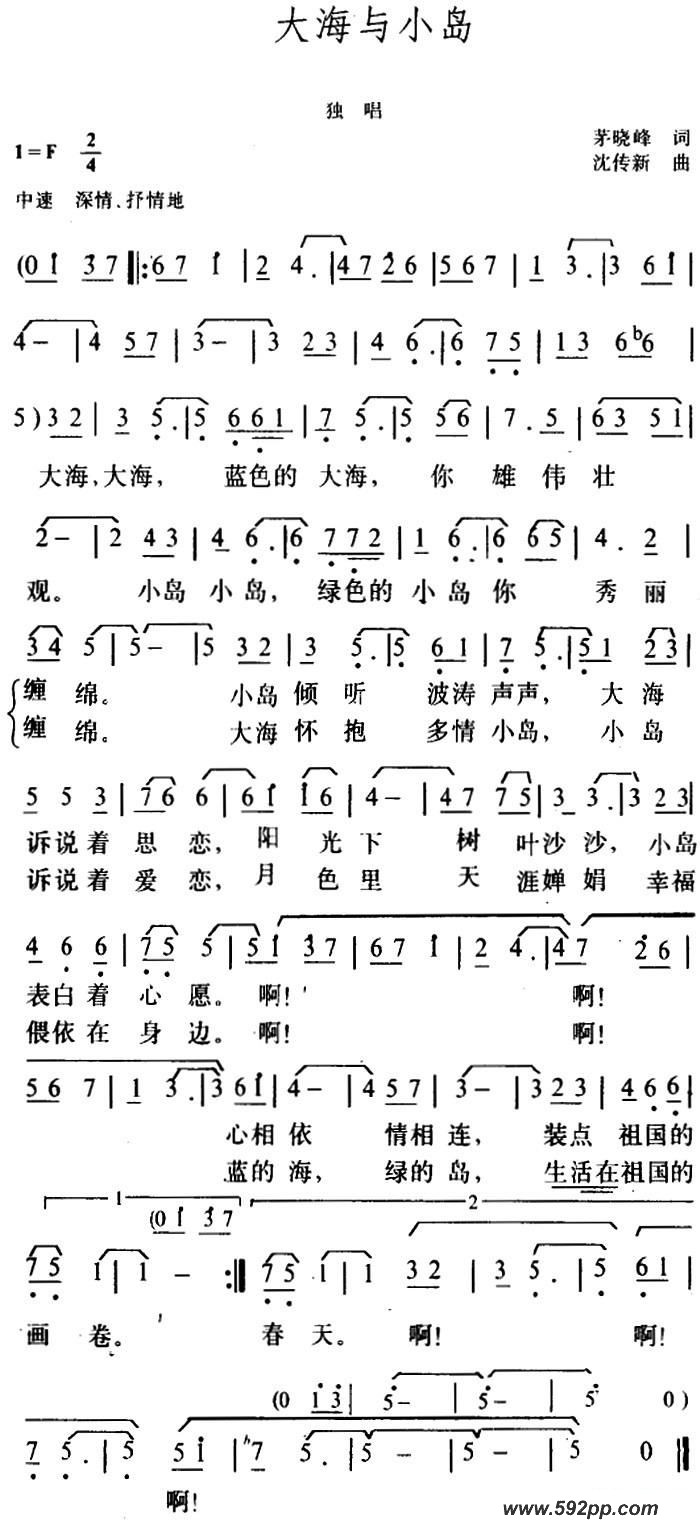 大海与小岛
独唱
1=F 2/4
茅晓峰 词
沈传新 曲
中速 深情、抒情地
(0 1 3 7 ‖: 6 7 1 | 2 4. | 4 7 2 6 | 5 6 7 | 1 3. | 3 6 1 |
4 – | 4 5 7 | 3 – | 3 2 3 | 4 6. | 6 7 5 | 1 3 6 b6 |
5 ) 3 2 | 3 5. | 5 6 6 1 | 7 5. | 5 5 6 | 7. 5 | 6 3 5 1 |
大海,大海, 蓝色的 大海, 你 雄 伟 壮
2 – | 2 4 3 | 4 6. | 6 7 7 2 | 1 6. | 6 6 5 | 4. 2 |
观。 小岛 小岛, 绿色的 小岛你 秀丽
3 4 5 | 5 – | 5 3 2 | 3 5. | 5 6 1 | 7 5. | 5 2 3 |
缠 绵。 小岛 倾 听 波涛 声声, 大 海
缠 绵。 大海 怀 抱 多情 小岛, 小 岛
5 5 3 | 7 6 6 | 6 1 1 6 | 4 – | 4 7 7 5 | 3 3. | 3 2 3 |
诉说着 思 恋, 阳 光 下 树 叶沙 沙, 小岛
诉说着 爱 恋, 月 色 里 天 涯婵 娟 幸福
4 6 6 | 7 5 5 | 5 1 3 7 | 6 7 1 | 2 4. | 4 7 2 6 |
表白着 心 愿。 啊! 啊!
偎依在 身 边。 啊! 啊!
5 6 7 | 1 3. | 3 6 1 | 4 – | 4 5 7 | 3 – | 3 2 3 | 4 6 6 |
心相 依 情相 连, 装点 祖国的
蓝的 海, 绿的 岛, 生活在祖国的
1 2
(0 1 3 7
7 5 1 | 1 – :‖ 7 5 1 | 1 3 2 | 3 5. | 5 6 1 |
画 卷。 春 天。 啊! 啊!
(0 1 3 | 5 – | 5 – | 5 0 )
7 5. | 5 5 1 | 7 5. | 5 – | 5 – | 5 0 ‖
啊!
www.592pp.com